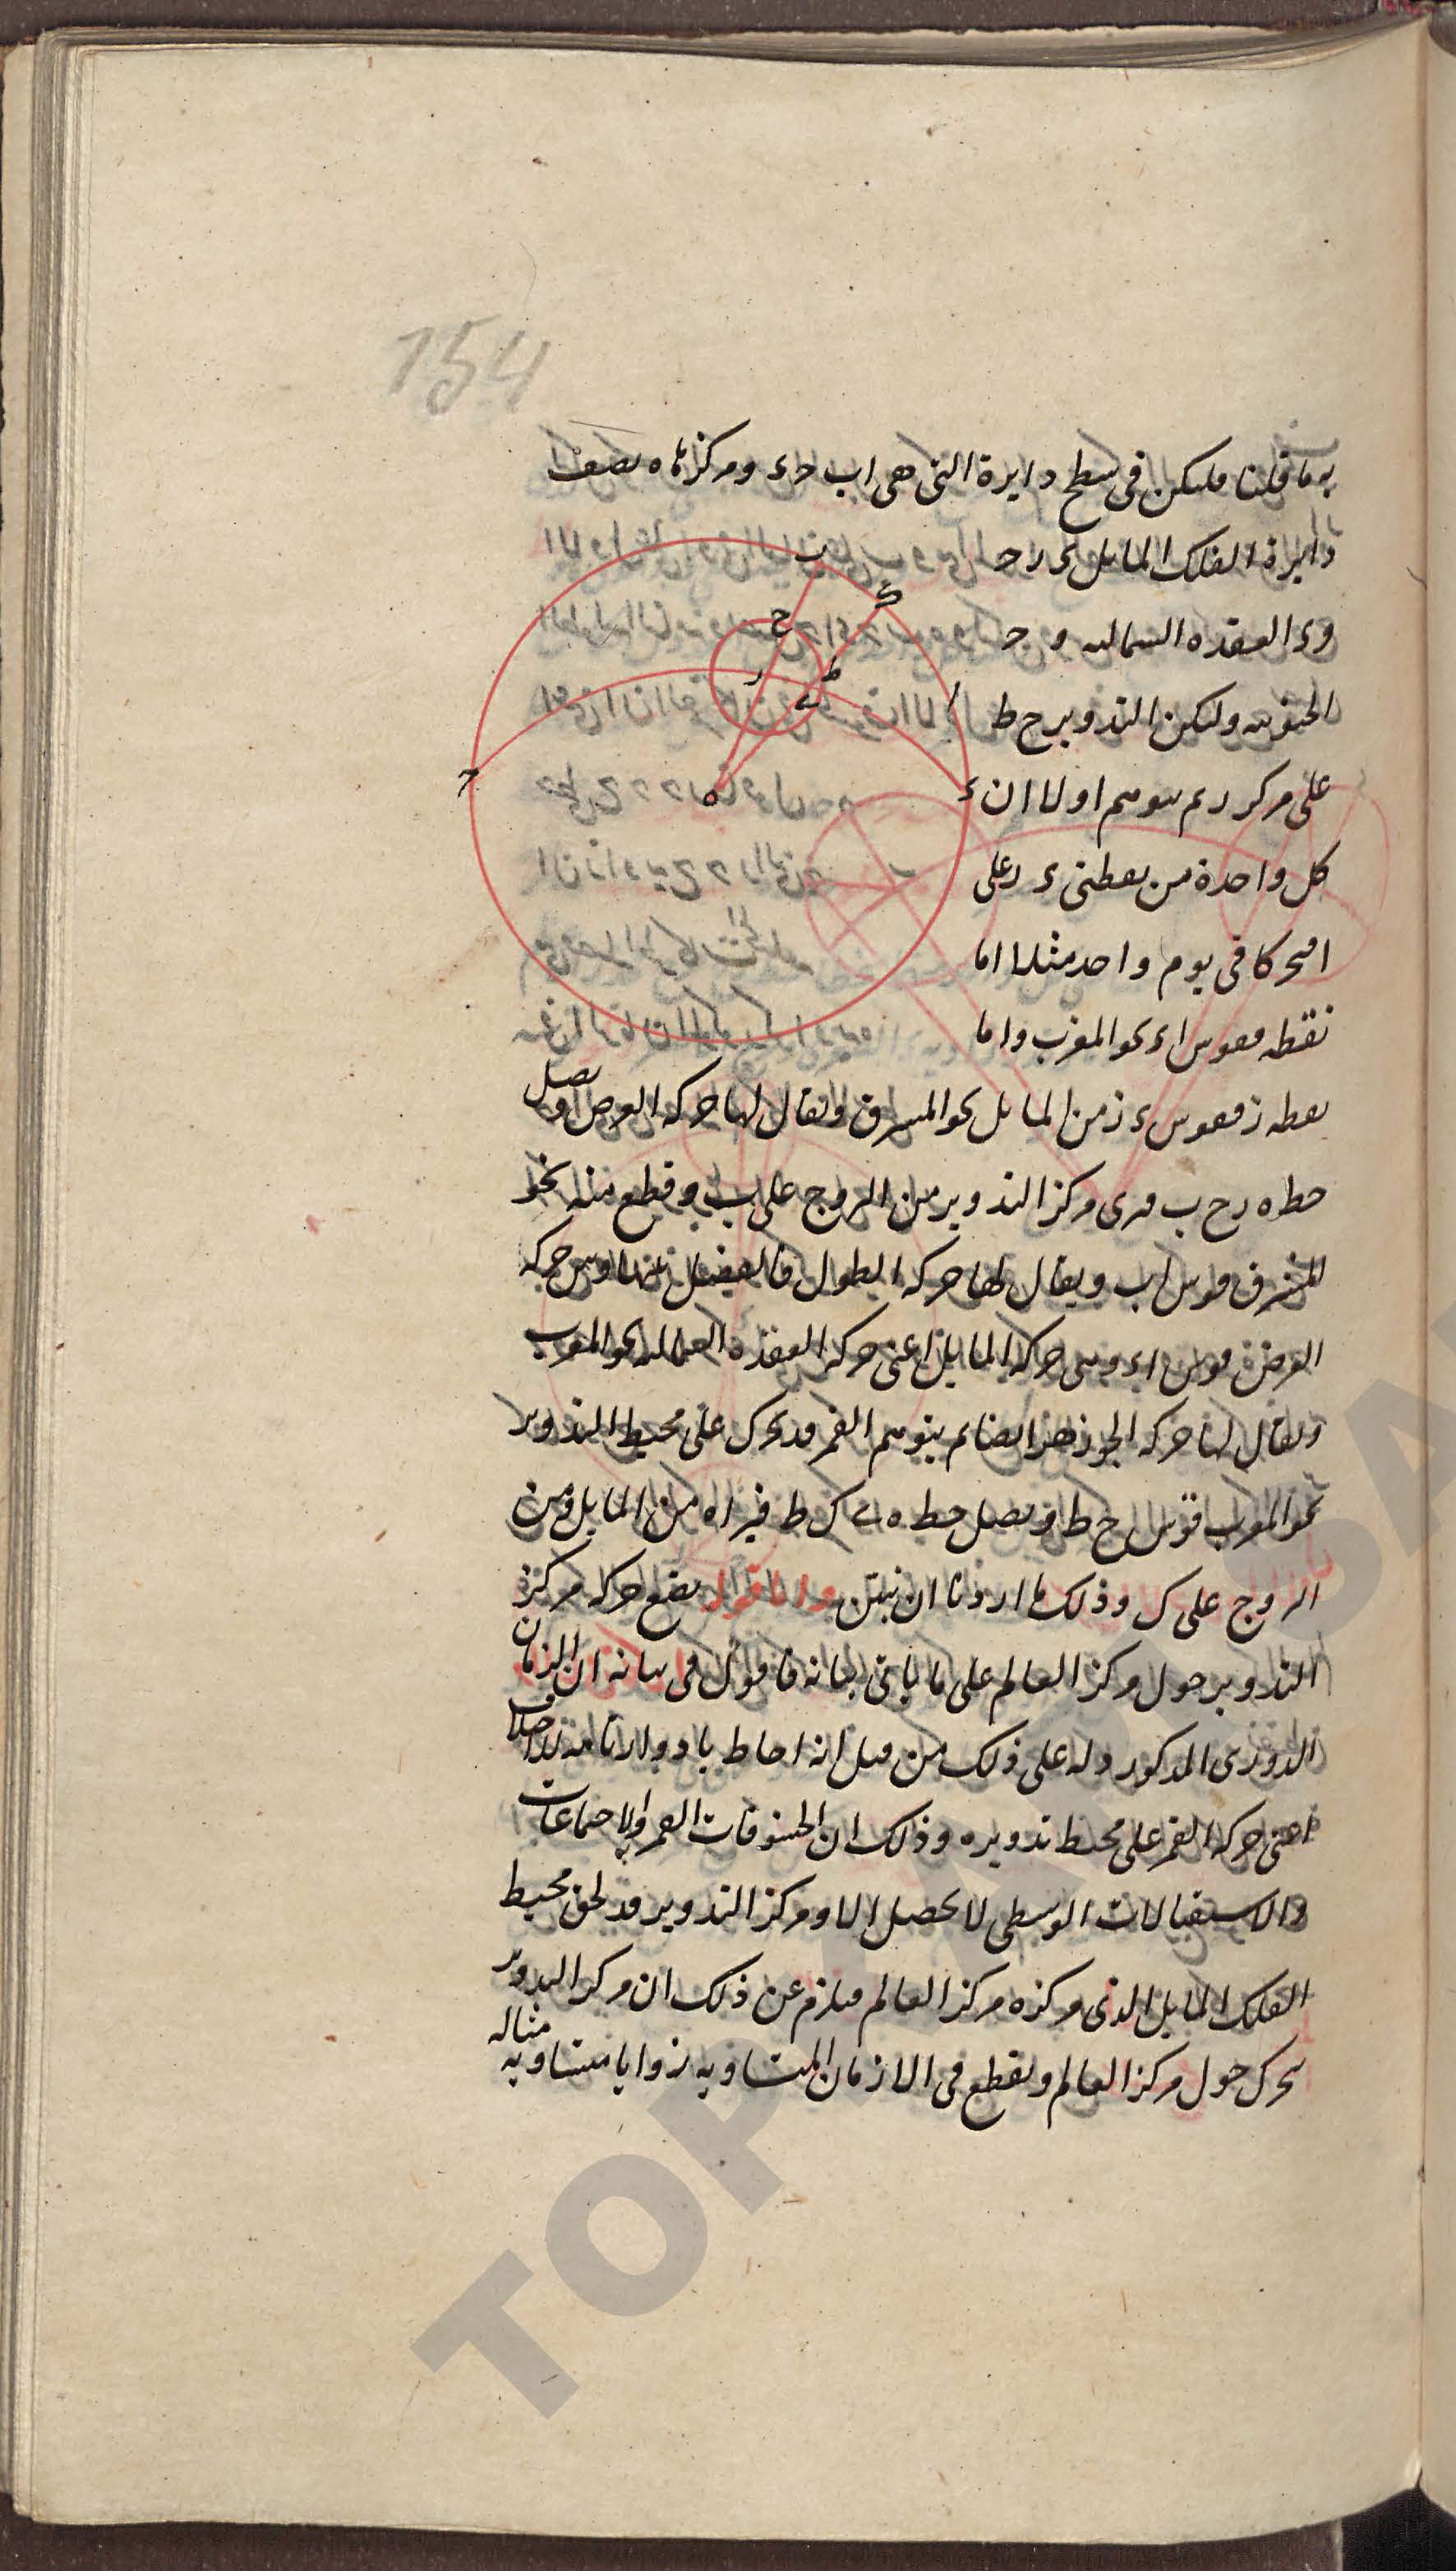 154
به ما قلنا فليكن فى سطح دايرة التى هى اب حء ومركزها ه نصف
دايرة الفلك المايل ء ر حـ
وء العقده الشماليه و حـ
الجنوبيه وليكن التدوير ح ط
على مركز ر ثم نتوهم اولا ان
كل واحدة من نقطتى ء ر على
ا تحركا فى يوم واحد مثلا اما
نقطه فقوس اء نحو المغرب واما
نقطه ز فقوس ء ز من المايل نحو المشرق ويقال لها حركه العرض ونصل
خط ه ر ح ب فيرى مركز التدوير من البروج على ب وقطع منه نحو
المشرق قوس اب ويقال لها حركه الطول فالفضل وبين حركه
العرض قوس اء وهى حركه المايل اعنى حركه العقده الشماليه نحو المغرب
ويقال لها حركه الجوزهر ايضا ثم نتوهم القمر قد تحرك على محيط التدوير
نحو المغرب قوس ح ط ونصل خط ه ى ك ط فيراه من المايل ومن
البروج على ك وذلك ما اردنا ان نبين واما قولنا بقع حركه مركز
التدوير حول مركز العالم على ما ياتى بيانه فاقول فى بيانه ان الزمان
الدورى المذكور دله على ذلك من قبل انه احاط بادوار تامه لاختلاف
اعنى حركه القمر على محيط تدويره وذلك ان الخسوفات القمر والاجتماعات
والاستقبالات الوسطى لا تحصل الا ومركز التدوير قد لحق محيط
الفلك المايل الذى مركزه مركز العالم فيلزم عن ذلك ان مركز التدوير
تحرك حول مركز العالم ويقطع فى الازمان المتساويه زوايا متساويه مثاله
ب
ك
ح
ط
ر
ى
ا
ء
ح
ه
TOP
SA